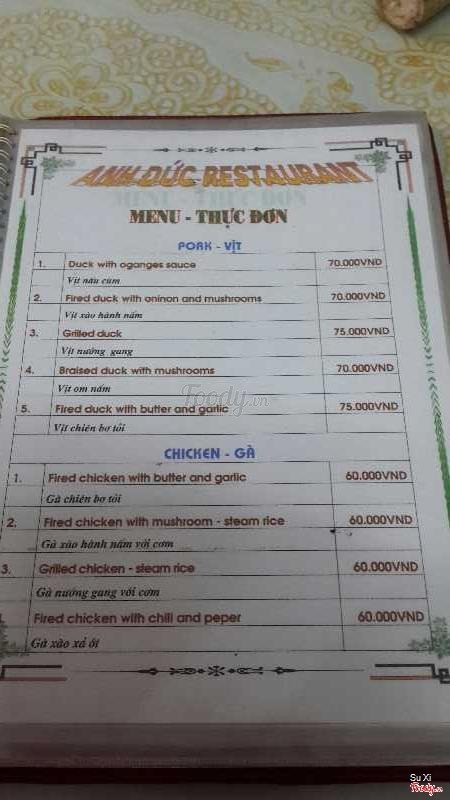 ANH ĐỨC RESTAURANT
MENU - THỰC ĐƠN
PORK - VỊT
1. Duck with oganges sauce 70.000VND
Vịt nấu cam
2. Fired duck with oninon and mushrooms 70.000VND
Vịt xào hành nấm
3. Grilled duck 75.000VND
Vịt nướng gang
4. Braised duck with mushrooms 70.000VND
Vịt om nấm
Foody.vn
5. Fired duck with butter and garlic 75.000VND
Vịt chiên bơ tỏi
CHICKEN - GÀ
1. Fired chicken with butter and garlic 60.000VND
Gà chiên bơ tỏi
2. Fired chicken with mushroom - steam rice 60.000VND
Gà xào hành nấm với cơm
3. Grilled chicken - steam rice 60.000VND
Gà nướng gang với cơm
Fired chicken with chili and peper 60.000VND
Gà xào xả ớt
Su Xi
Foody.vn